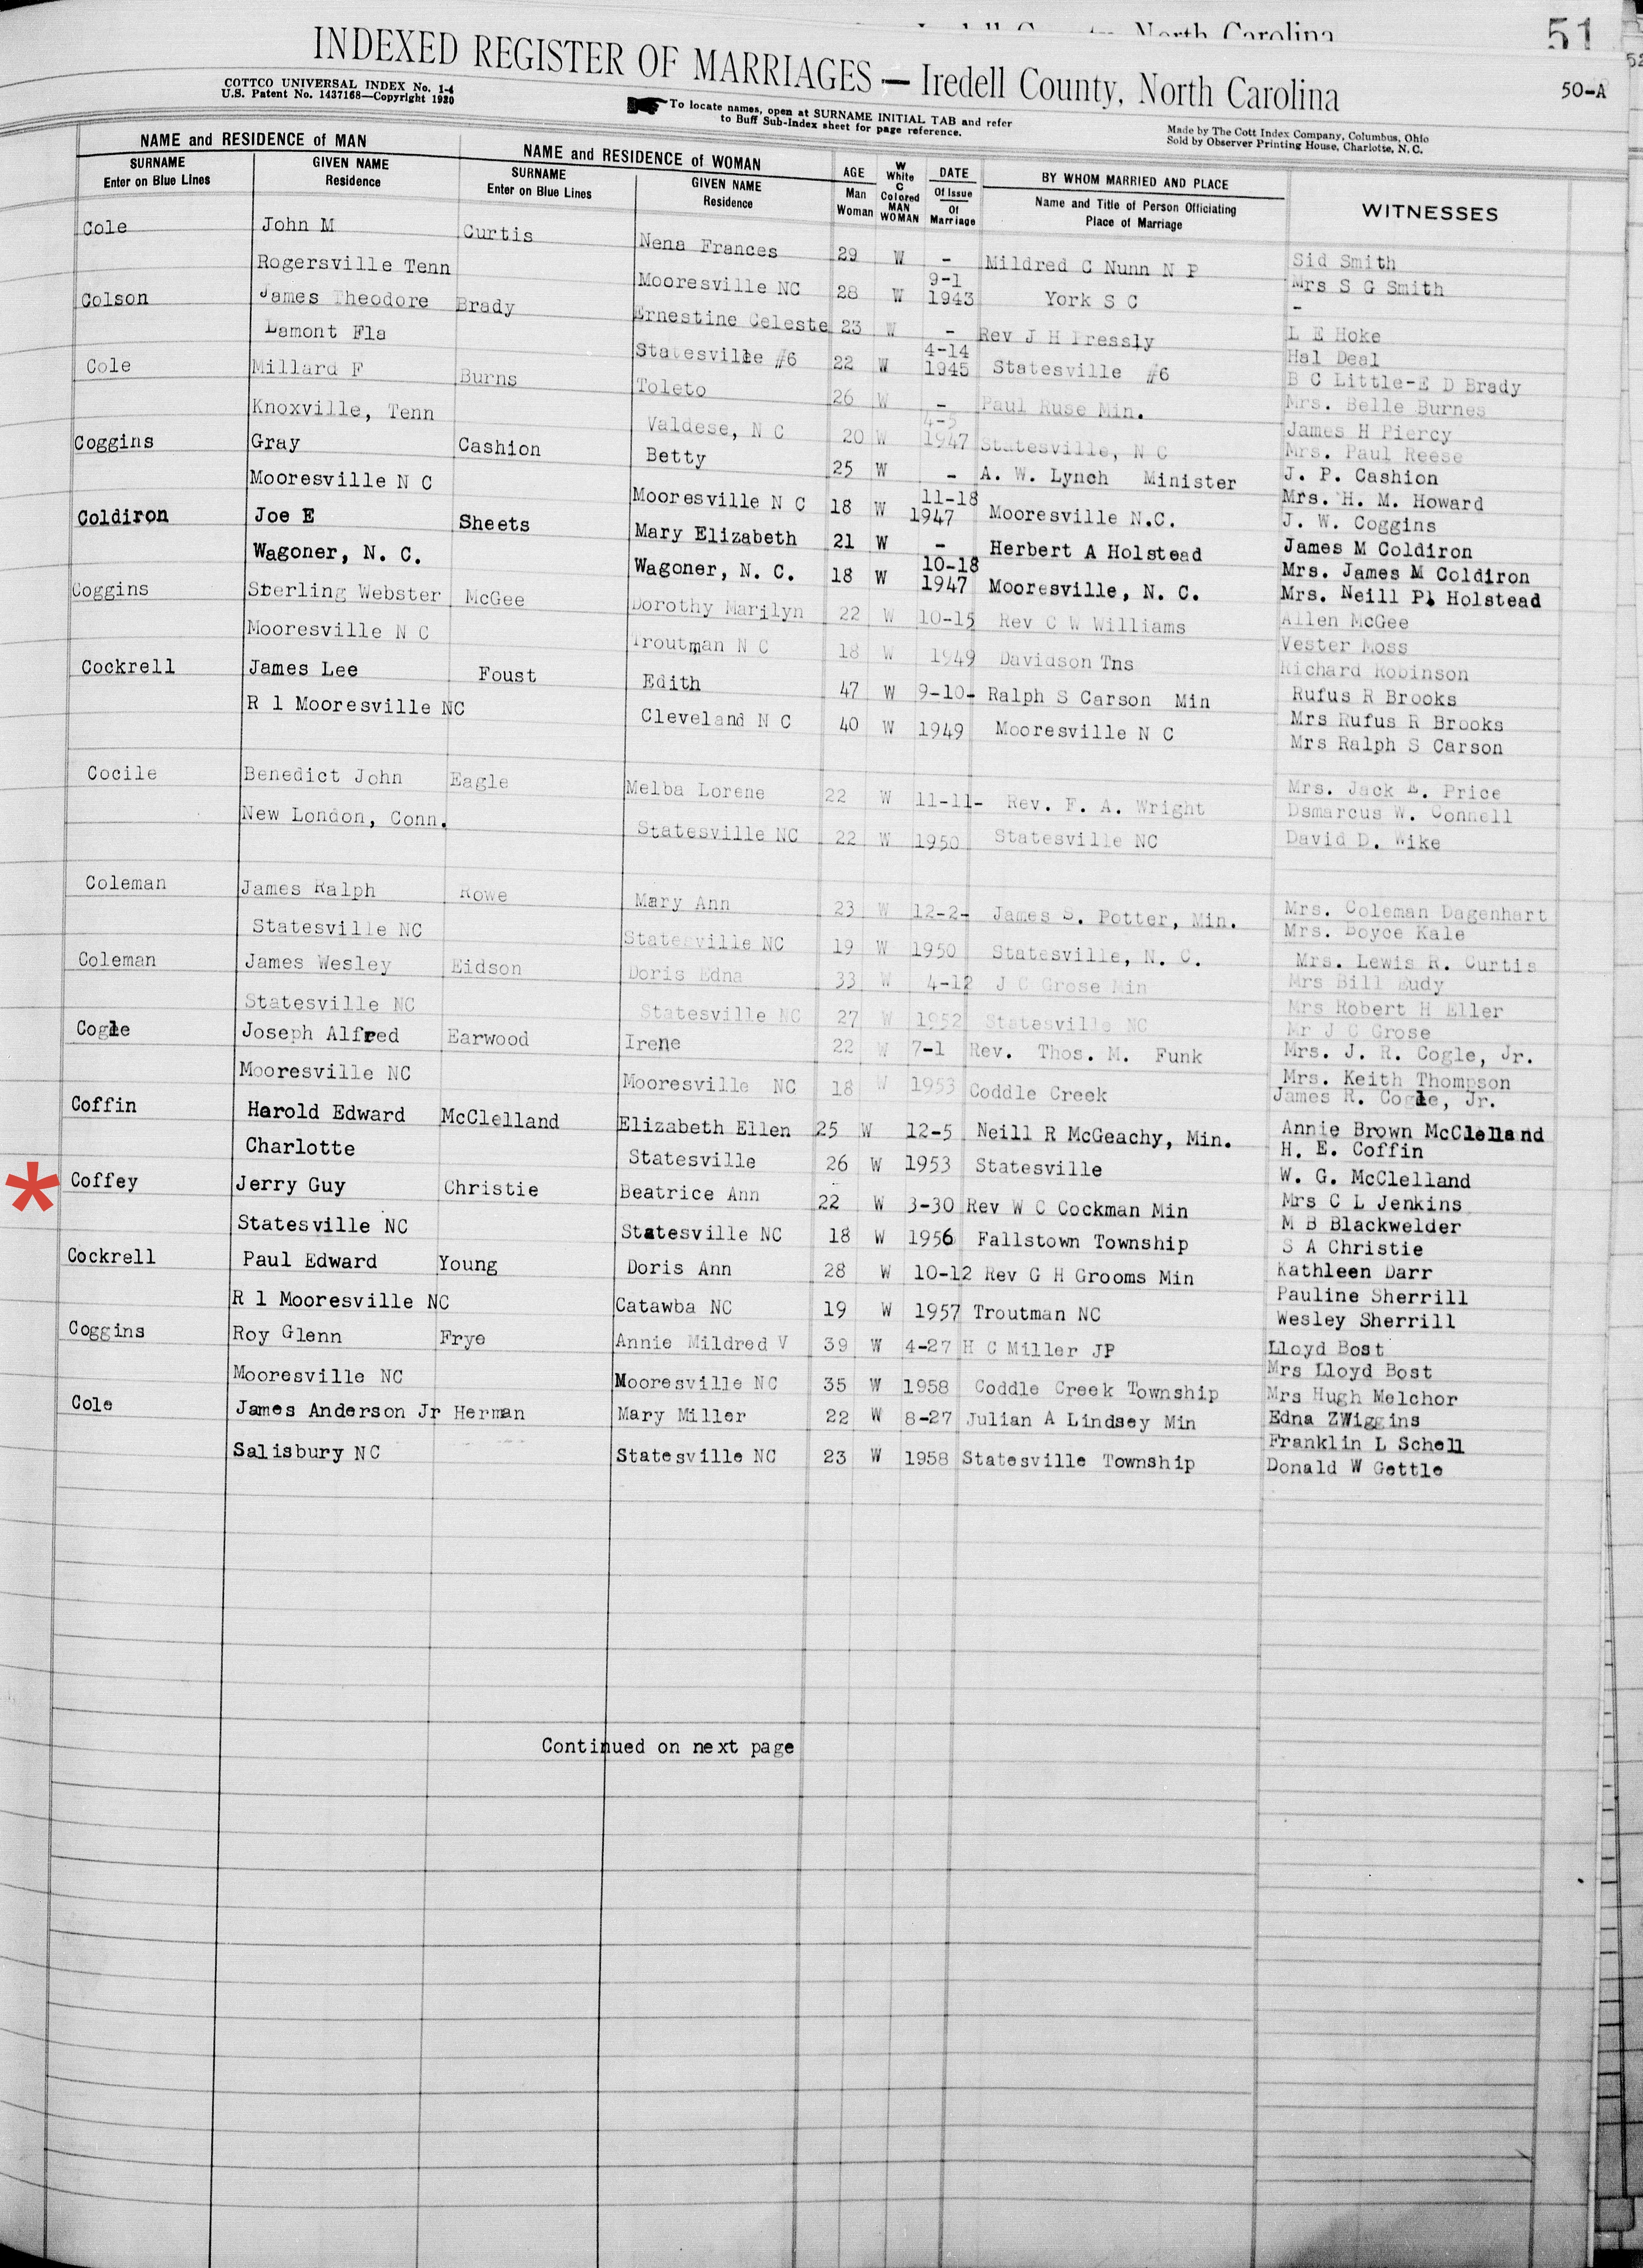 Iredell County, North Carolina
51
52
INDEXED REGISTER OF MARRIAGES — Iredell County, North Carolina
50-A
COTTCO UNIVERSAL INDEX No. 1-4
U.S. Patent No. 1437168—Copyright 1920
To locate names, open at SURNAME INITIAL TAB and refer
to Buff Sub-Index sheet for page reference.
Made by The Cott Index Company, Columbus, Ohio
Sold by Observer Printing House, Charlotte, N. C.
NAME and RESIDENCE of MAN
NAME and RESIDENCE of WOMAN
SURNAME
Enter on Blue Lines
GIVEN NAME
Residence
SURNAME
Enter on Blue Lines
GIVEN NAME
Residence
AGE
Man
Woman
W
White
C
Colored
MAN
WOMAN
DATE
Of Issue
Of
Marriage
BY WHOM MARRIED AND PLACE
Name and Title of Person Officiating
Place of Marriage
WITNESSES
Cole John M Curtis Nena Frances 29 W - Mildred C Nunn N P Sid Smith
Rogersville Tenn Mooresville NC 28 W 9-1 1943 York S C Mrs S G Smith
-
Colson James Theodore Brady Ernestine Celeste 23 W - Rev J H Pressly L E Hoke
Lamont Fla Statesville #6 22 W 4-14 1945 Statesville #6 Hal Deal
B C Little-E D Brady
Cole Millard F Burns Toleto 26 W - Paul Ruse Min. Mrs. Belle Burnes
Knoxville, Tenn Valdese, N C 20 W 4-5 1947 Statesville, N C James H Piercy
Mrs. Paul Reese
Coggins Gray Cashion Betty 25 W - A. W. Lynch Minister J. P. Cashion
Mooresville N C Mooresville N C 18 W 11-18 1947 Mooresville N.C. Mrs. H. M. Howard
J. W. Coggins
Coldiron Joe E Sheets Mary Elizabeth 21 W - Herbert A Holstead James M Coldiron
Wagoner, N. C. Wagoner, N. C. 18 W 10-18 1947 Mooresville, N. C. Mrs. James M Coldiron
Mrs. Neill P. Holstead
Coggins Sterling Webster McGee Dorothy Marilyn 22 W 10-15 Rev C W Williams Allen McGee
Mooresville N C Troutman N C 18 W 1949 Davidson Tns Vester Moss
Richard Robinson
Cockrell James Lee Foust Edith 47 W 9-10- Ralph S Carson Min Rufus R Brooks
R 1 Mooresville NC Cleveland N C 40 W 1949 Mooresville N C Mrs Rufus R Brooks
Mrs Ralph S Carson
Cocile Benedict John Eagle Melba Lorene 22 W 11-11- Rev. F. A. Wright Mrs. Jack E. Price
New London, Conn. Statesville NC 22 W 1950 Statesville NC Dsmarcus W. Connell
David D. Wike
Coleman James Ralph Rowe Mary Ann 23 W 12-2- James S. Potter, Min. Mrs. Coleman Dagenhart
Statesville NC Statesville NC 19 W 1950 Statesville, N. C. Mrs. Boyce Kale
Mrs. Lewis R. Curtis
Coleman James Wesley Eidson Doris Edna 33 W 4-12 J C Grose Min Mrs Bill Eudy
Statesville NC Statesville NC 27 W 1952 Statesville NC Mrs Robert H Eller
Mr J C Grose
Cogle Joseph Alfred Earwood Irene 22 W 7-1 Rev. Thos. M. Funk Mrs. J. R. Cogle, Jr.
Mooresville NC Mooresville NC 18 W 1953 Coddle Creek Mrs. Keith Thompson
James R. Cogle, Jr.
Coffin Harold Edward McClelland Elizabeth Ellen 25 W 12-5 Neill R McGeachy, Min. Annie Brown McClelland
Charlotte Statesville 26 W 1953 Statesville H. E. Coffin
W. G. McClelland
* Coffey Jerry Guy Christie Beatrice Ann 22 W 3-30 Rev W C Cockman Min Mrs C L Jenkins
Statesville NC Statesville NC 18 W 1956 Fallstown Township M B Blackwelder
S A Christie
Cockrell Paul Edward Young Doris Ann 28 W 10-12 Rev G H Grooms Min Kathleen Darr
R 1 Mooresville NC Catawba NC 19 W 1957 Troutman NC Pauline Sherrill
Wesley Sherrill
Coggins Roy Glenn Frye Annie Mildred V 39 W 4-27 H C Miller JP Lloyd Bost
Mooresville NC Mooresville NC 35 W 1958 Coddle Creek Township Mrs Lloyd Bost
Mrs Hugh Melchor
Cole James Anderson Jr Herman Mary Miller 22 W 8-27 Julian A Lindsey Min Edna ZWiggins
Salisbury NC Statesville NC 23 W 1958 Statesville Township Franklin L Schell
Donald W Gettle
Continued on next page